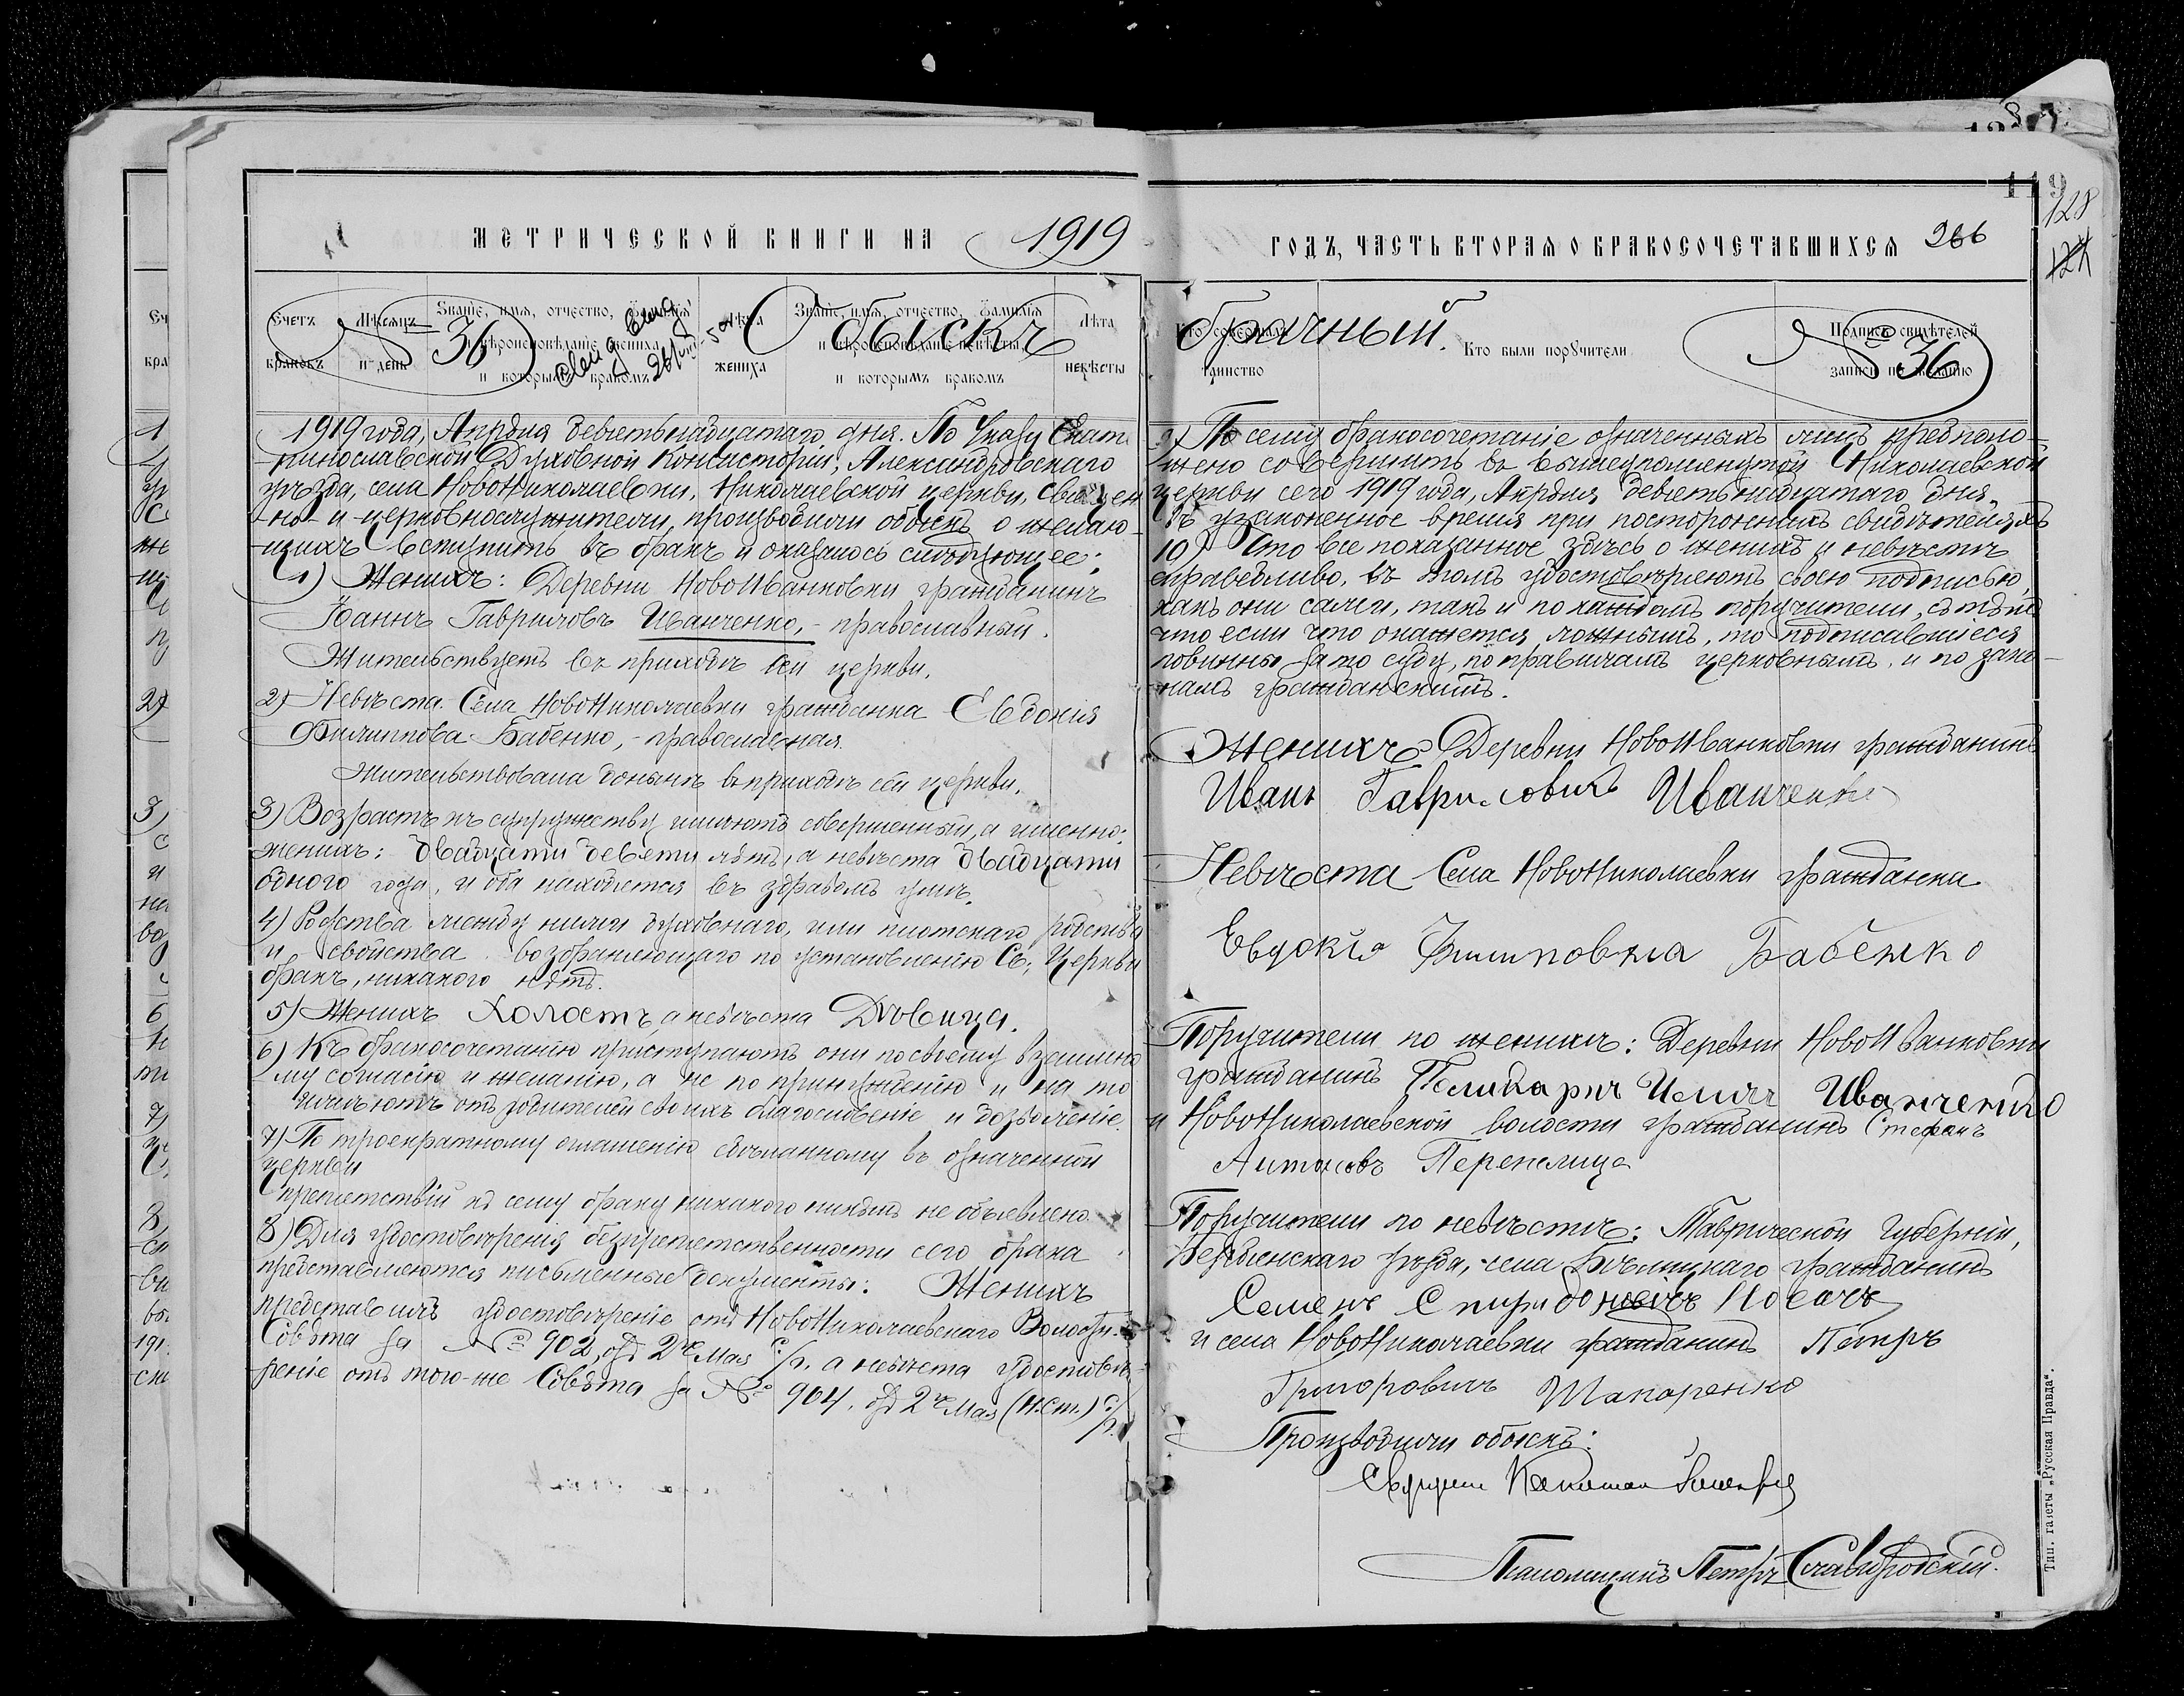 МЕТРИЧЕСКОЙ КНИГИ НА 1919
Счетъ браковъ
Мѣсяцъ и день
Званіе, имя, отчество, фамилія и вѣроисповѣданіе жениха и которымъ бракомъ
Лѣта жениха
Званіе, имя, отчество, фамилія и вѣроисповѣданіе невѣсты, и которымъ бракомъ
Лѣта невѣсты
№ 36
Обыскъ
1919 года, Апрѣля девятьнадцатаго дня. По Указу Екате-
ринославской Духовной Консисторіи, Александровскаго
уѣзда, села НовоНиколаевки, Николаевской церкви, священ
-но- и -церковнослужители, производили обыскъ о желаю-
щихъ вступить въ бракъ и оказалось слѣдующее:
1) Женихъ: Деревни НовоИванковки гражданинъ
Іоаннъ Гавриловъ Иванченко, - православный.
Жительствуетъ въ приходѣ сей церкви.
2) Невѣста. Села НовоНиколаевки гражданка Евдокія
Филиппова Бабенко, - православная.
Жительствовала донынѣ въ приходѣ сей церкви.
3) Возрастъ къ супружеству имѣютъ совершенный, а именно:
женихъ: двадцати девяти лѣтъ, а невѣста двадцати
одного года, и оба находятся въ здравомъ умѣ.
4) Родства между ними духовнаго, или плотскаго родства
и свойства возбраняющаго по установленію Св. Церкви
бракъ, никакого нѣтъ.
5) Женихъ Холостъ, а невѣста Дѣвица.
6) Къ бракосочетанію приступаютъ они по своему взаимно
му согласію и желанію, а не по принужденію и на то
имѣютъ отъ родителей своихъ благословеніе и дозволеніе.
7) По троекратному оглашенію сдѣланному въ означенной
церкви
препятствій къ сему браку никакого никѣмъ не объявлено.
8) Для удостовѣренія безпрепятственности сего брака
представляются письменные документы: Женихъ
представилъ удостовѣреніе отъ НовоНиколаевскаго Волостн.
Совѣта за № 902, отъ 2го Мая с/г. а невѣста удостовѣ-
реніе отъ того-же Совѣта за № 904. отъ 2го Мая (н.ст.) с/г.
119
128
ГОДЪ, ЧАСТЬ ВТОРАЯ О БРАКОСОЧЕТАВШИХСЯ 266
Кто совершалъ таинство
Кто были поручители
Подпись свидѣтелей записи по желанію
брачный.
№ 36
9) По сему бракосочетаніе означенныхъ лицъ предполо-
жено совершить въ вышеупомянутой Николаевской
церкви сего 1919 года, Апрѣля девятьнадцатаго дня,
въ узаконенное время при постороннихъ свидѣтеляхъ
10) Что все показанное здѣсь о женихѣ и невѣстѣ
справедливо, въ томъ удостовѣряютъ своею подписью,
какъ они сами, такъ и по каждомъ поручители, съ тѣмъ
что если что окажется ложнымъ, то подписавшіеся
повинны за то суду, по правиламъ церковнымъ, и по зако-
намъ гражданскимъ.
Женихъ Деревни НовоИванковки гражданинъ
Иванъ Гавриловичъ Иванченко
Невѣста Села НовоНиколаевки гражданка
Евдокія Филиповна Бабенко
Поручители по женихѣ: Деревни НовоИванковки
гражданинъ Поликарпъ Иличъ Иванченко
и НовоНиколаевской волости гражданинъ Стефанъ
Антоновъ Перепелица
Поручители по невѣстѣ: Таврической Губерніи,
Бердянскаго уѣзда, села гражданинъ
Семенъ Спиридоновичъ Носачъ
и села НовоНиколаевки гражданинъ Петръ
Григоровичъ Шапаренко
Производили обыскъ:
Псаломщикъ Петръ
Тип. газеты „Русская Правда“.